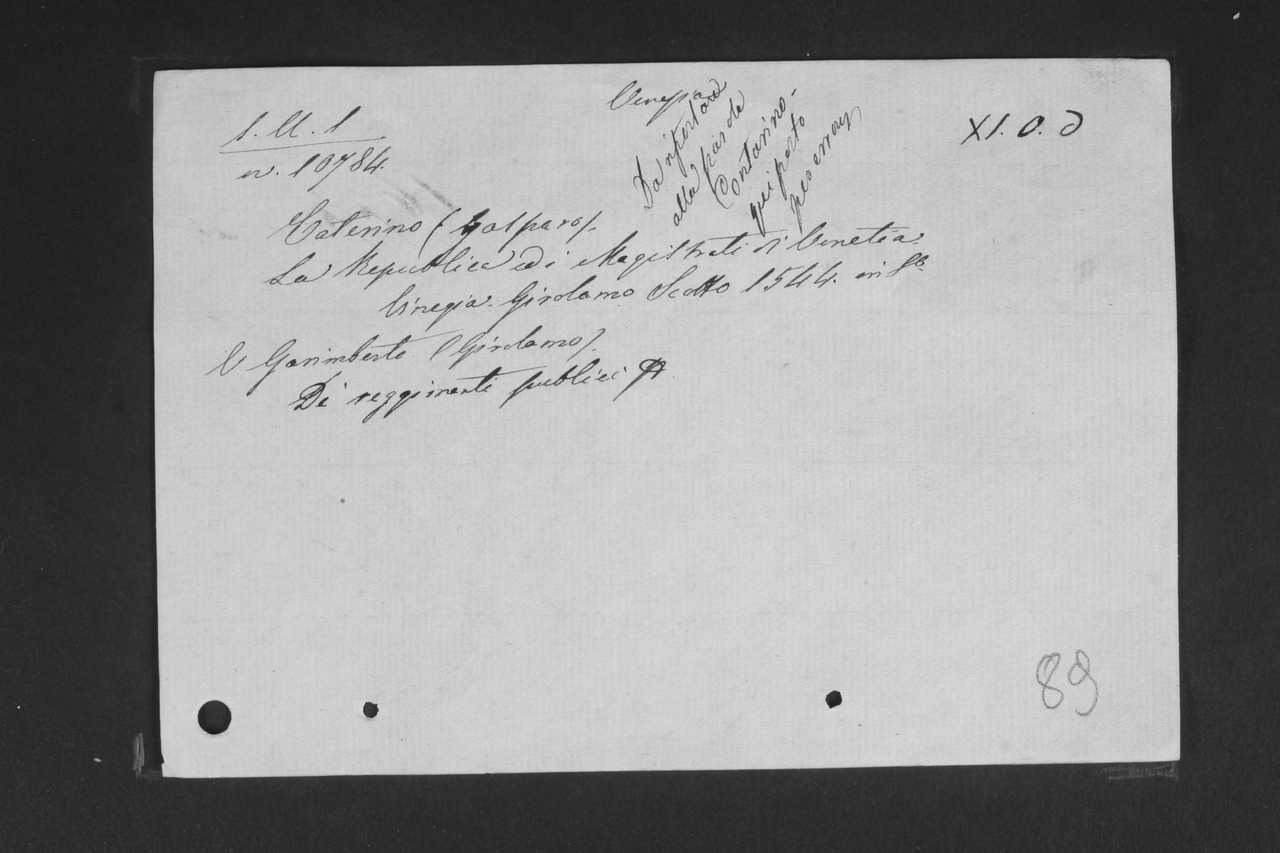 Venezia
1. U. 1
n. 10784.
XI. O. d
Da riportare
alla parola
Contarino -
qui posto
per error
Caterino (Gasparo).
La Republica e di Magistrati di Venetia.
Vinegia. Girolamo Scotto 1544. in 8º
V Garimberto (Girolamo).
De' reggimenti publici
89